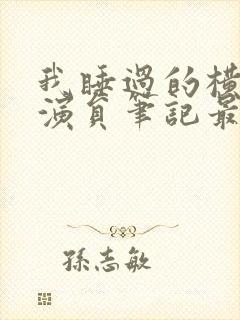 我睡過的橫
演員筆記最
孫志敏